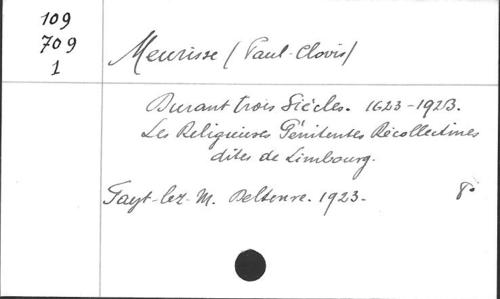 109
709
1
Meurisse (Paul-Clovis)
Durant trois Siècles. 1623-1923.
Les Religieuses Pénitentes Récollectines
dites de Limbourg.
Fayt-lez-M. Deltenre. 1923. 8°